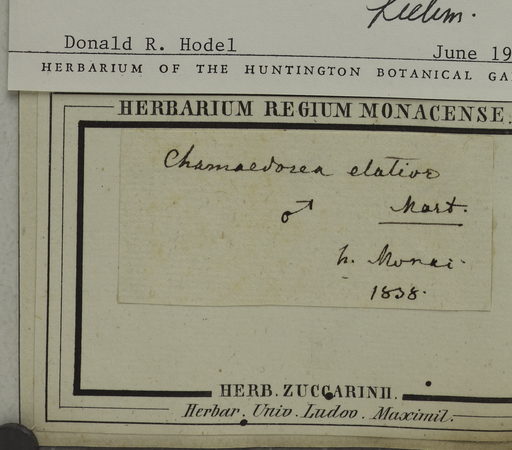 Liebm.
Donald R. Hodel
June 19
HERBARIUM OF THE HUNTINGTON BOTANICAL GA
HERBARIUM REGIUM MONACENSE.
Chamaedorea elatior
♂ Mart.
h. Monac.
1838.
HERB. ZUCCARINII.
Herbar. Univ. Ludov. Maximil.